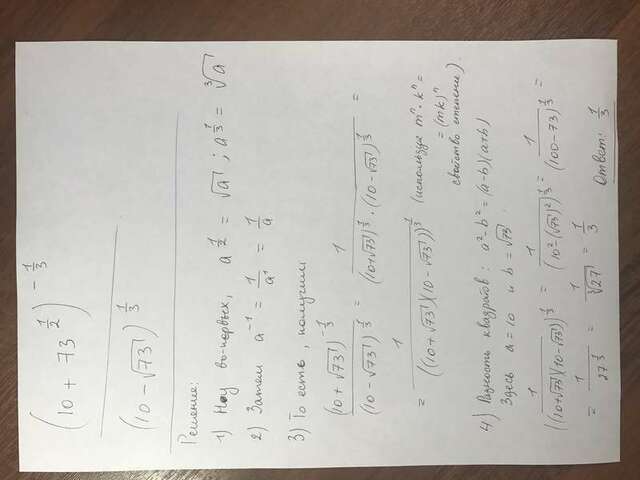 (10 + 73^{1/2})^{-1/3}
(10 - √73)^{1/3}
Решение:
1) Ну во-первых, a^{1/2} = √a ; a^{1/3} = ∛a
2) Затем a^{-1} = 1/a^1 = 1/a
3) То есть, получим
(10 + √73)^{-1/3} / (10 - √73)^{1/3} = 1 / ((10+√73)^{1/3} · (10 - √73)^{1/3}) =
= 1 / ((10 + √73)(10 - √73))^{1/3} (используя m^n · k^n =
= (mk)^n
свойство степени).
4) Разность квадратов: a² - b² = (a-b)(a+b)
Здесь a = 10 и b = √73
1 / ((10+√73)(10-√73))^{1/3} = 1 / (10² - (√73)²)^{1/3} = 1 / (100 - 73)^{1/3} =
= 1 / 27^{1/3} = 1 / ∛27 = 1/3
Ответ: 1/3